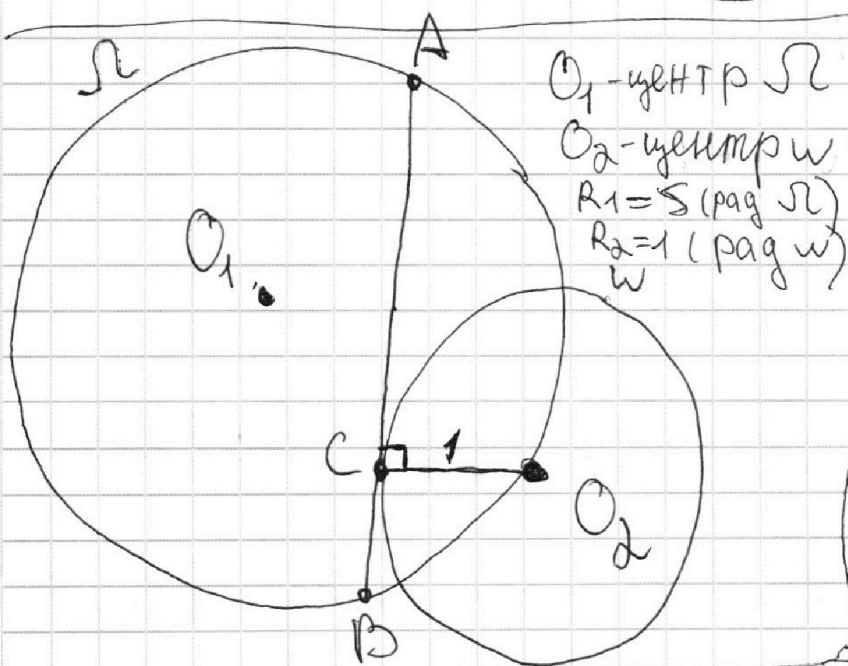 Ω
A
O₁-центр Ω
O₂-центр w
R1=5 (рад Ω)
R₂=1 (рад w)
w
O₁
C
1
O₂
B